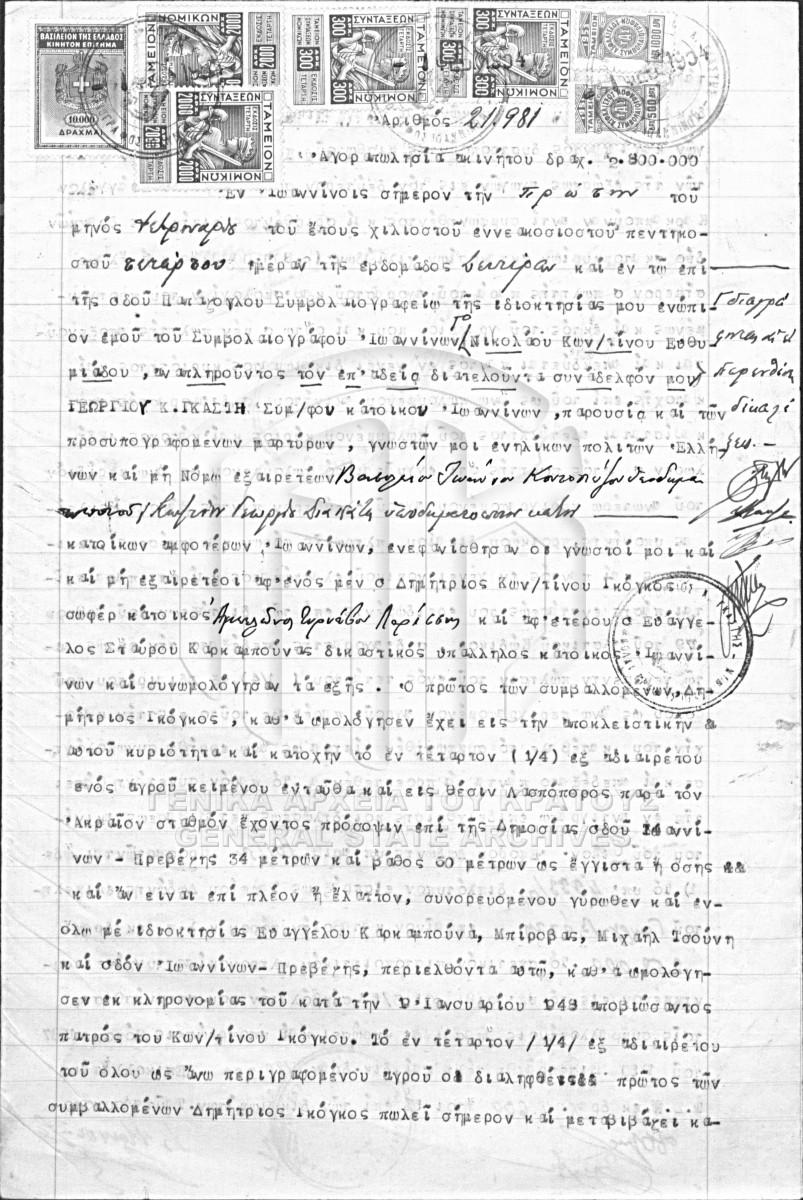 ΒΑΣΙΛΕΙΟΝ ΤΗΣ ΕΛΛΑΔΟΣ
ΚΙΝΗΤΟΝ ΕΠΙΣΗΜΑ
10.000
ΔΡΑΧΜΑΙ
ΤΑΜΕΙΟΝ ΝΟΜΙΚΩΝ
2000
ΤΑΜΕΙΟΝ ΣΥΝΤΑΞΕΩΝ ΝΟΜΙΚΩΝ
2000
ΣΥΝΤΑΞΕΩΝ ΤΑΜΕΙΟΝ ΝΟΜΙΚΩΝ
300
ΣΥΝΤΑΞΕΩΝ ΤΑΜΕΙΟΝ ΝΟΜΙΚΩΝ
300
Ἀριθμός 21.981
Ἀγοραπωλησία ακινήτου δραχ. 2.800.000
Ἐν Ἰωαννίνοις σήμερον τήν πρώτην τοῦ
μηνός Φεβρουαρίου τοῦ ἔτους χιλιοστοῦ εννεακοσιοστοῦ πεντηκο-
στοῦ τετάρτου ημέραν τῆς εβδομάδος Δευτέραν καί εν τῶ επί
τῆς οδοῦ Παπάζογλου Συμβολαιογραφείω τῆς ιδιοκτησίας μου ενώπι-
ον εμοῦ τοῦ Συμβολαιογράφου Ἰωαννίνων Νικολάου Κων/τίνου Ευθυ
μιάδου, αναπληροῦντος τόν επ' αδεία διατελοῦντα συνάδελφόν μου
ΓΕΩΡΓΙΟΥ Κ. ΓΚΑΣΤΗ Συμ/φου κατοίκου Ἰωαννίνων, παρουσία καί τῶν
προσυπογραφομένων μαρτύρων, γνωστῶν μοι ενηλίκων πολιτῶν Ἑλλή-
νων καί μή Νόμω εξαιρετέων Βασιλείου Ἰωάννου
Γεωργίου
κατοίκων αμφοτέρων Ἰωαννίνων, ενεφανίσθησαν οι γνωστοί μοι καί
καί μή εξαιρετέοι αφ' ενός μέν ο Δημήτριος Κων/τίνου Γκόγκος,
σωφέρ κάτοικος Ἀμπελῶνος Τυρνάβου Λαρίσσης καί αφ' ετέρου ο Ευάγγε-
λος Σταύρου Καρκαμπούνας δικαστικός υπάλληλος κάτοικος Ἰωαννί-
νων καί συνωμολόγησαν τά εξῆς. Ὁ πρῶτος τῶν συμβαλλομένων, Δη-
μήτριος Γκόγκος, καθ' ά ωμολόγησεν ἔχει εις τήν αποκλειστικήν
αυτοῦ κυριότητα καί κατοχήν τό ἐν τέταρτον (1/4) εξ αδιαιρέτου
ενός αγροῦ κειμένου ενταῦθα καί εις θέσιν Λασπόπορος παρά τόν
Ἀκραῖον σταθμόν ἔχοντος πρόσοψιν επί τῆς Δημοσίας οδοῦ Ἰωαννί-
νων - Πρεβέζης 34 μέτρων καί βάθος 60 μέτρων ως ἔγγιστα ἤ ὅσης
καί ἄν είναι επί πλέον ἤ ἔλαττον, συνορευομένου γύρωθεν καί εν-
όλω μέ ιδιοκτησίας Ευαγγέλου Καρκαμπούνα, Μπίροβας, Μιχαήλ Τσούνη
καί οδόν Ἰωαννίνων- Πρεβέζης, περιελθόντα αυτῶ, καθ' ά ωμολόγη-
σεν εκ κληρονομίας τοῦ κατά τήν 19 Ἰανουαρίου 1948 αποβιώσαντος
πατρός του Κων/τίνου Γκόγκου. Τό ἐν τέταρτον /1/4/ εξ αδιαιρέτου
τοῦ όλου ως ἄνω περιγραφομένου αγροῦ ο διαληφθείς πρῶτος τῶν
συμβαλλομένων Δημήτριος Γκόγκος πωλεῖ σήμερον καί μεταβιβάζει κα-
ΓΕΝΙΚΑ ΑΡΧΕΙΑ ΤΟΥ ΚΡΑΤΟΥΣ
GENERAL STATE ARCHIVES